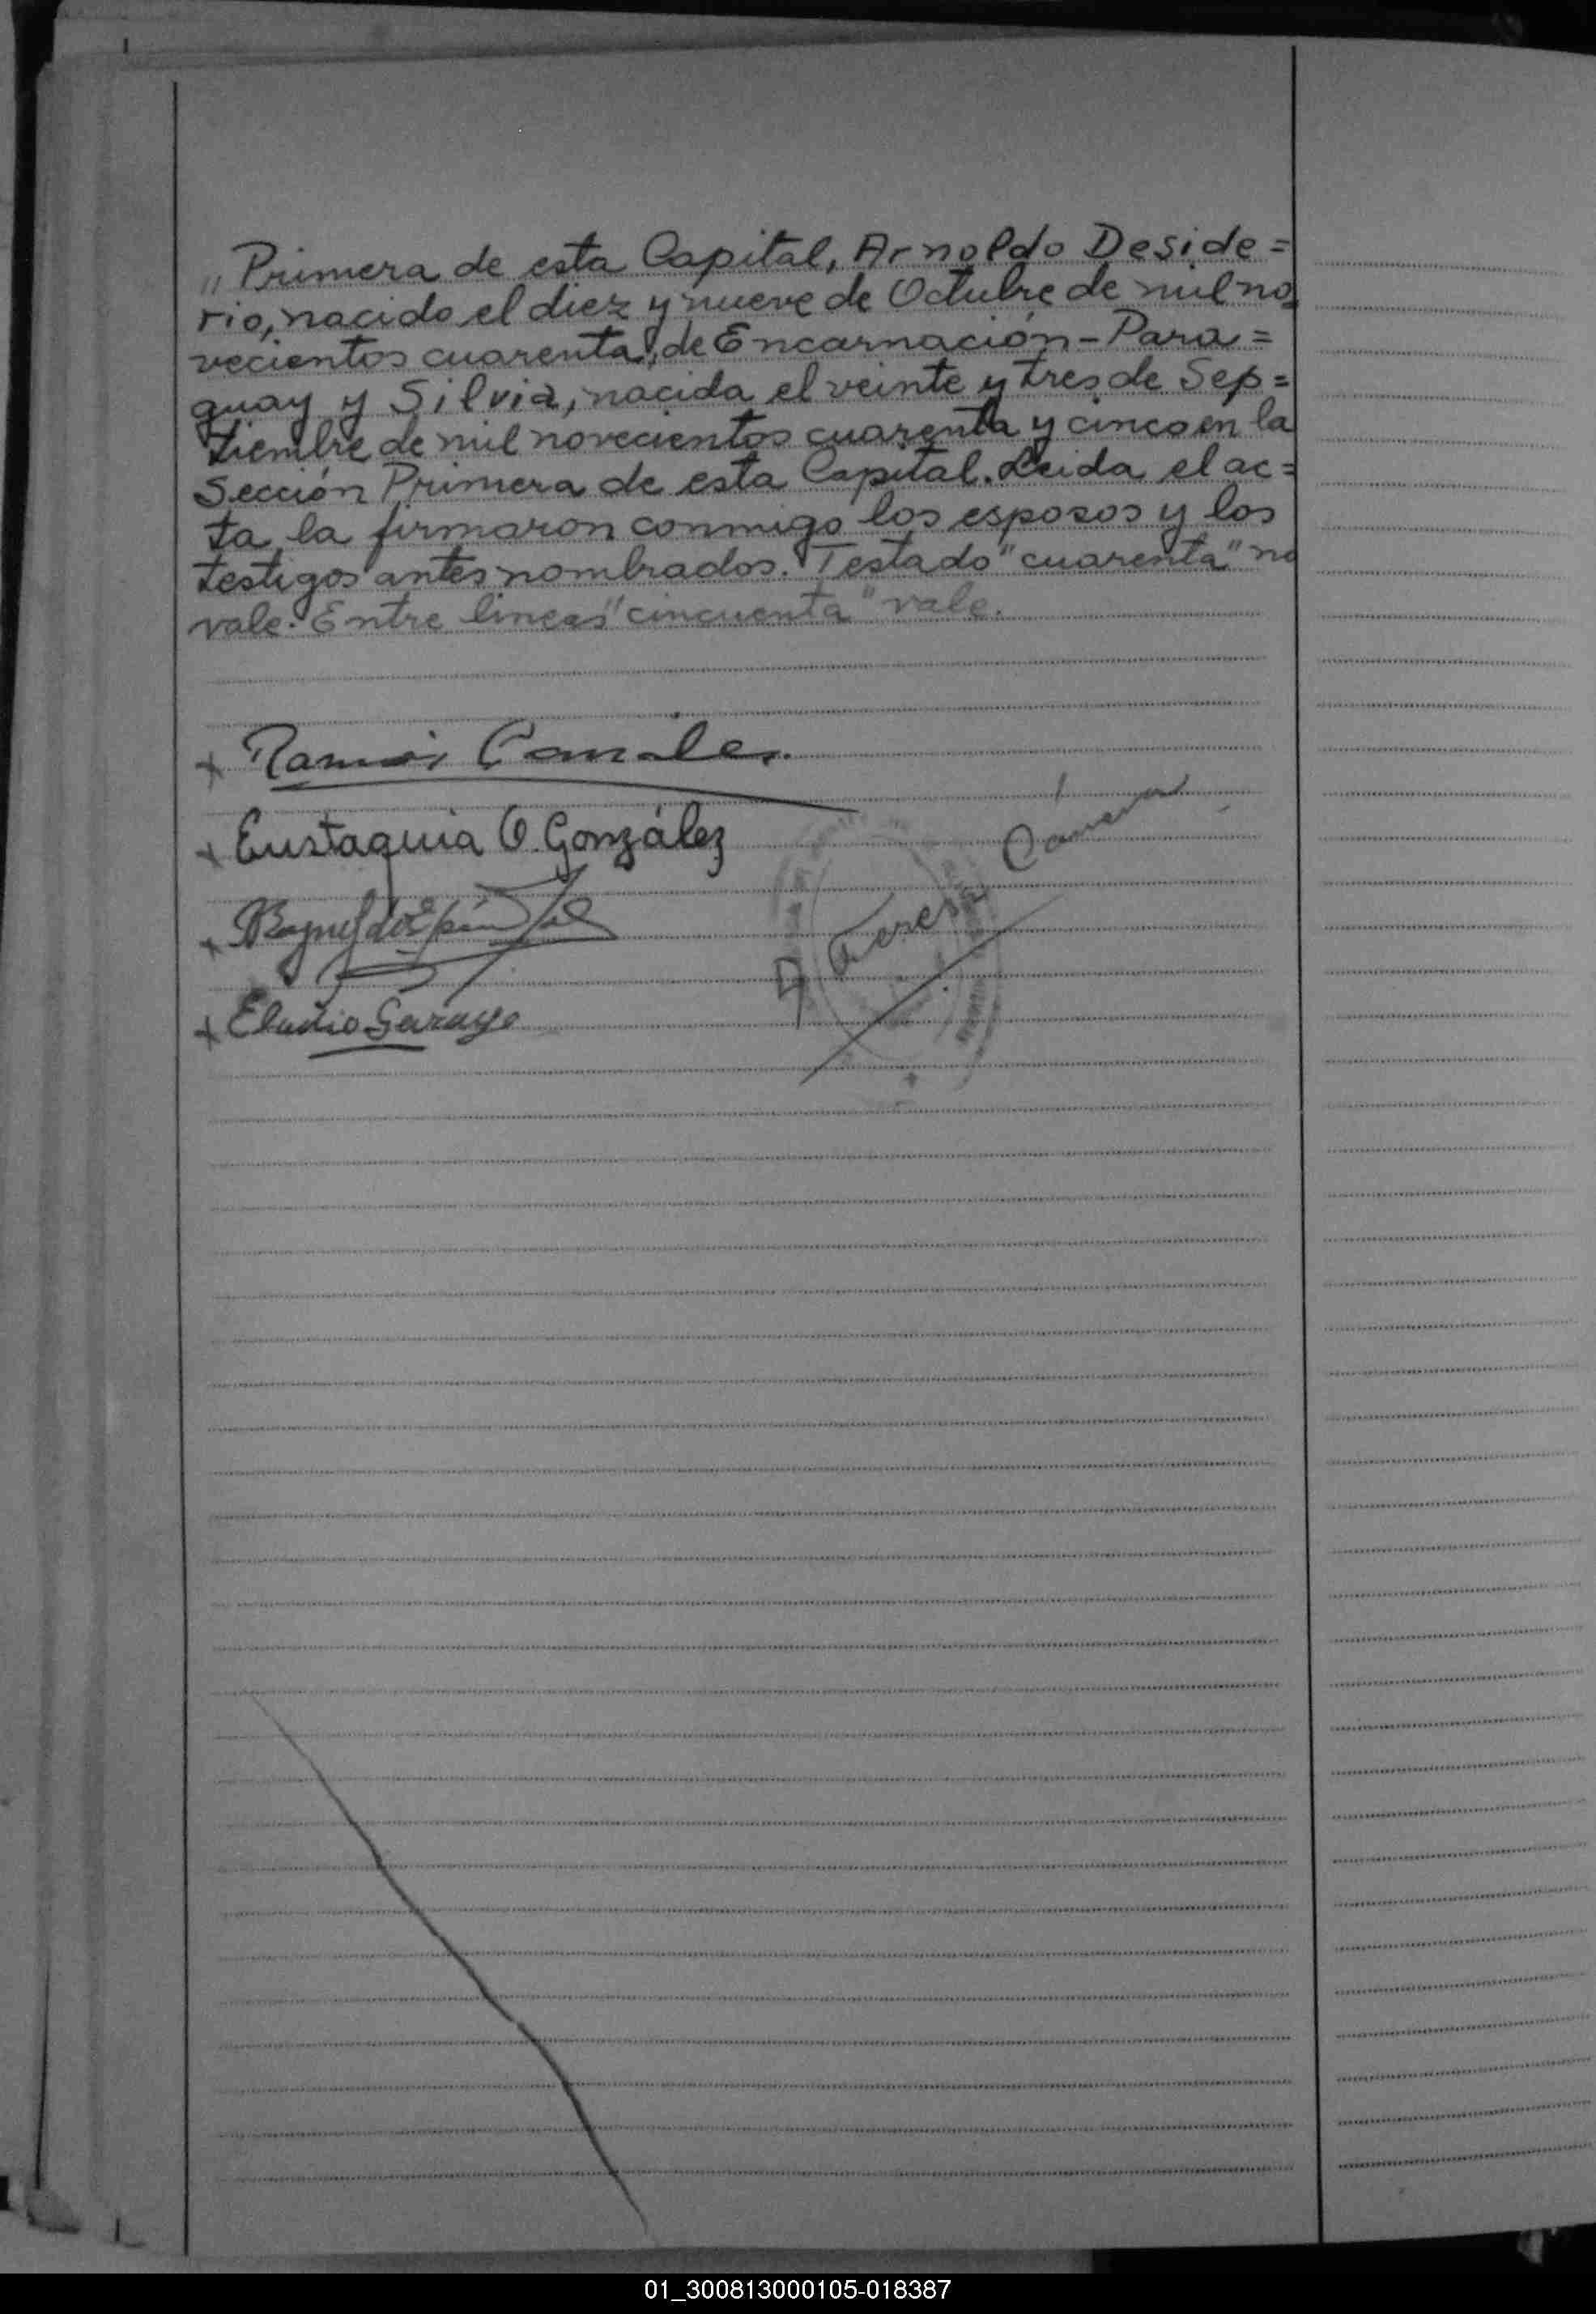 „Primera de esta Capital, Arnoldo Deside=
rio, nacido el diez y nueve de Octubre de mil no=
vecientos cuarenta, de Encarnación-Para=
guay y Silvia, nacida el veinte y tres de Sep=
tiembre de mil novecientos cuarenta y cinco en la
Sección Primera de esta Capital. Leida el ac=
ta la firmaron conmigo los esposos y los
testigos antes nombrados. Testado "cuarenta" no
vale. Entre lineas "cincuenta" vale.
+ Ramón
+ Eustaquia O. González
+
+ Eladio Garay
Teresa
01_300813000105-018387